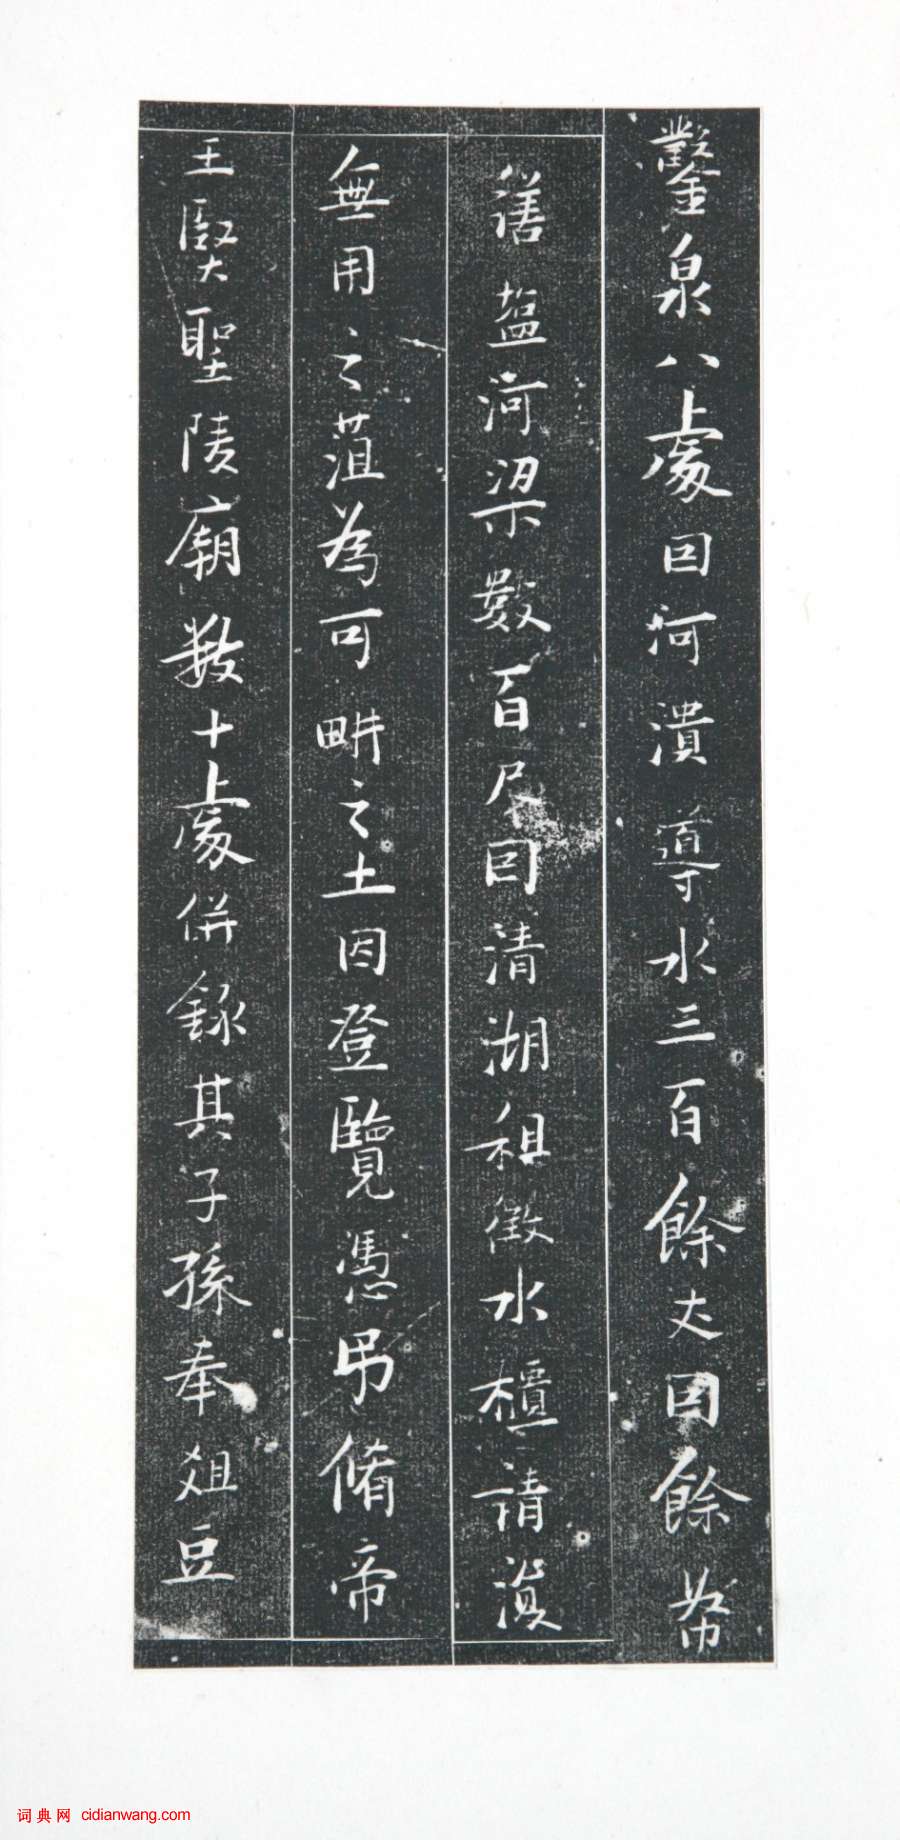 鑿泉八處因河潰導水三百餘丈因餘幣
繕盐河梁數百尺因清湖租徵水櫃請濬
無用之菹為可畊之土因登覽憑吊脩帝
王賢聖陵廟數十處併錄其子孫奉俎豆
词典网 cidianwang.com